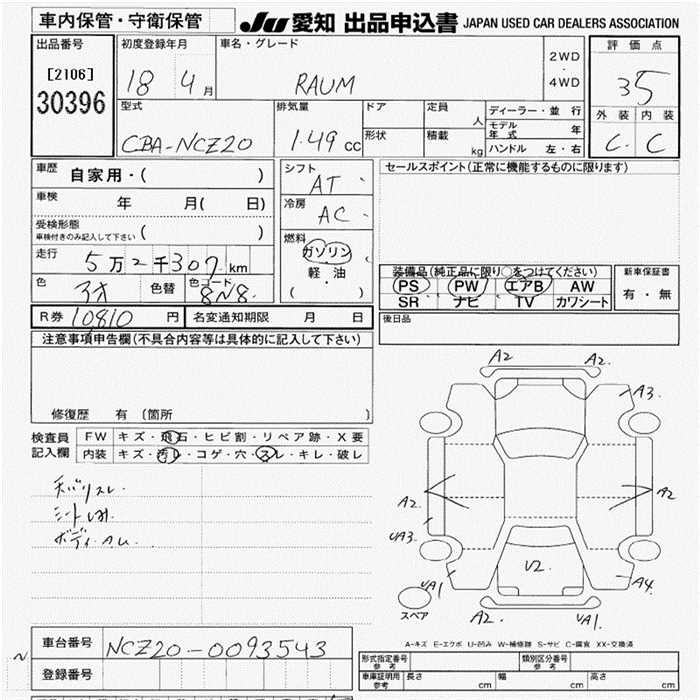 車内保管・守衛保管
JU 愛知 出品申込書 JAPAN USED CAR DEALERS ASSOCIATION
出品番号
[2106]
30396
初度登録年月
18 4月
車名・グレード
RAUM
2WD
・
4WD
評価点
35
外装 内装
C. C
型式
CBA-NCZ20
排気量
1.49 cc
ドア
形状
定員
人
積載
kg
ディーラー・並行
モデル年式 年
ハンドル 左・右
車歴
自家用・( )
車検
年 月( 日)
受検形態
車検付きのみ記入して下さい ( )
走行
5万2千307km
色
色替
色コード
8N8.
シフト
AT
冷房
AC
燃料
ガソリン
軽・油
( )
セールスポイント(正常に機能するものに限ります)
装備品(純正品に限り○をつけてください)
PS PW エアB AW
SR ナビ TV カワシート
新車保証書
有・無
後日品
R券 10,810 円
名変通知期限 月 日
注意事項申告欄(不具合内容等は具体的に記入して下さい)
修復歴 有 〔箇所 〕
検査員
記入欄
FW キズ・飛石・ヒビ割・リペア跡・X要
内装 キズ・汚レ・コゲ・穴・スレ・キレ・破レ
A2 A2.
A3
A2
A2
UA3
U2.
UA1
A4
A2 UA1
スペア
A-キズ E-エクボ U-凹み W-補修跡 S-サビ C-腐食 XX-交換済
車台番号 NCZ20-0093543
登録番号
形式指定番号
参考
類別区分番号
参考
車庫証明用
参考
長さ cm 幅 cm 高さ cm